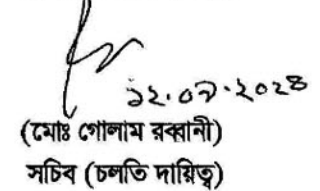 ১২.০৭.২০২৪
(মোঃ গোলাম রব্বানী)
সচিব (চলতি দায়িত্ব)